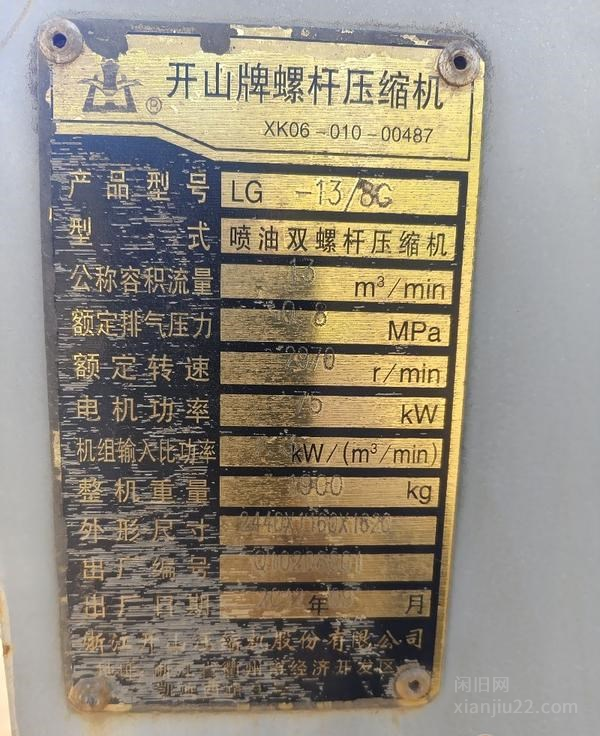 ®
开山牌螺杆压缩机
XK06-010-00487
产品型号 LG -13/8G
型式 喷油双螺杆压缩机
公称容积流量 13 m³/min
额定排气压力 0.8 MPa
额定转速 2970 r/min
电机功率 75 kW
机组输入比功率 kW/(m³/min)
整机重量 1900 kg
外形尺寸
出厂编号
出厂日期 年 月
浙江开山压缩机股份有限公司
经济开发区
闲旧网
xianjiu22.com